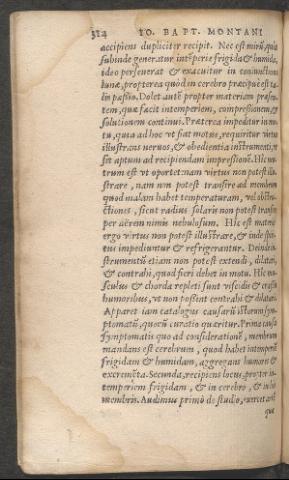 314 IO. BAPT. MONTANI
accipiens dupliciter recipit. Nec est mirū, quia
subinde generatur intēperie frigida & humida,
ideo perseuerat & exacuitur in coniunctione
lunæ, propterea quòd in cerebro præcipuè est ta-
lis passio. Dolet autē propter materiam præsen-
tem, quæ facit intemperiem, compressionem, &
solutionem continui. Præterea impeditur in mo-
tu, quia ad hoc vt fiat motus, requiritur virtus
illustrans neruos, & obedientia instrumenti, vt
sit aptum ad recipiendam impressionē. Hîc ne-
utrum est vt oportet: nam virtus non potest illu-
strare, nam non potest transire ad membrum
quod malam habet temperaturam, vel obstru-
ctiones, sicut radius solaris non potest transire
per aërem nimis nebulosum. Hîc est materia
ergo virtus non potest illustrare, & inde spiri-
tus impediuntur & refrigerantur. Deinde in-
strumentū etiam non potest extendi, dilatari,
& contrahi, quod fieri debet in motu. Hîc mu-
sculus & chorda repleti sunt viscidis & crassis
humoribus, vt non possint contrahi & dilatari.
Apparet iam catalogus causarū istorum sym-
ptomatū, quorū curatio quæritur. Prima causa
symptomatis quo ad considerationē, membrum
mandans est cerebrum, quod habet intemperiē
frigidam & humidam, aggregans humores &
excremēta. Secunda, recipiens locus, propter in-
temperiem frigidam, & in cerebro, & in his
membris. Audiuimus primò de studio,
que